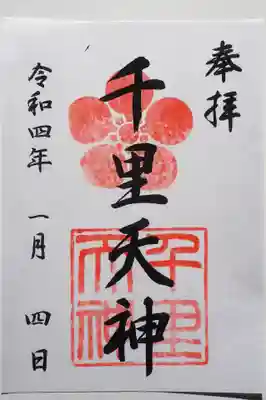 奉拝
千里天神
千里天神
令和四年 一月 四日